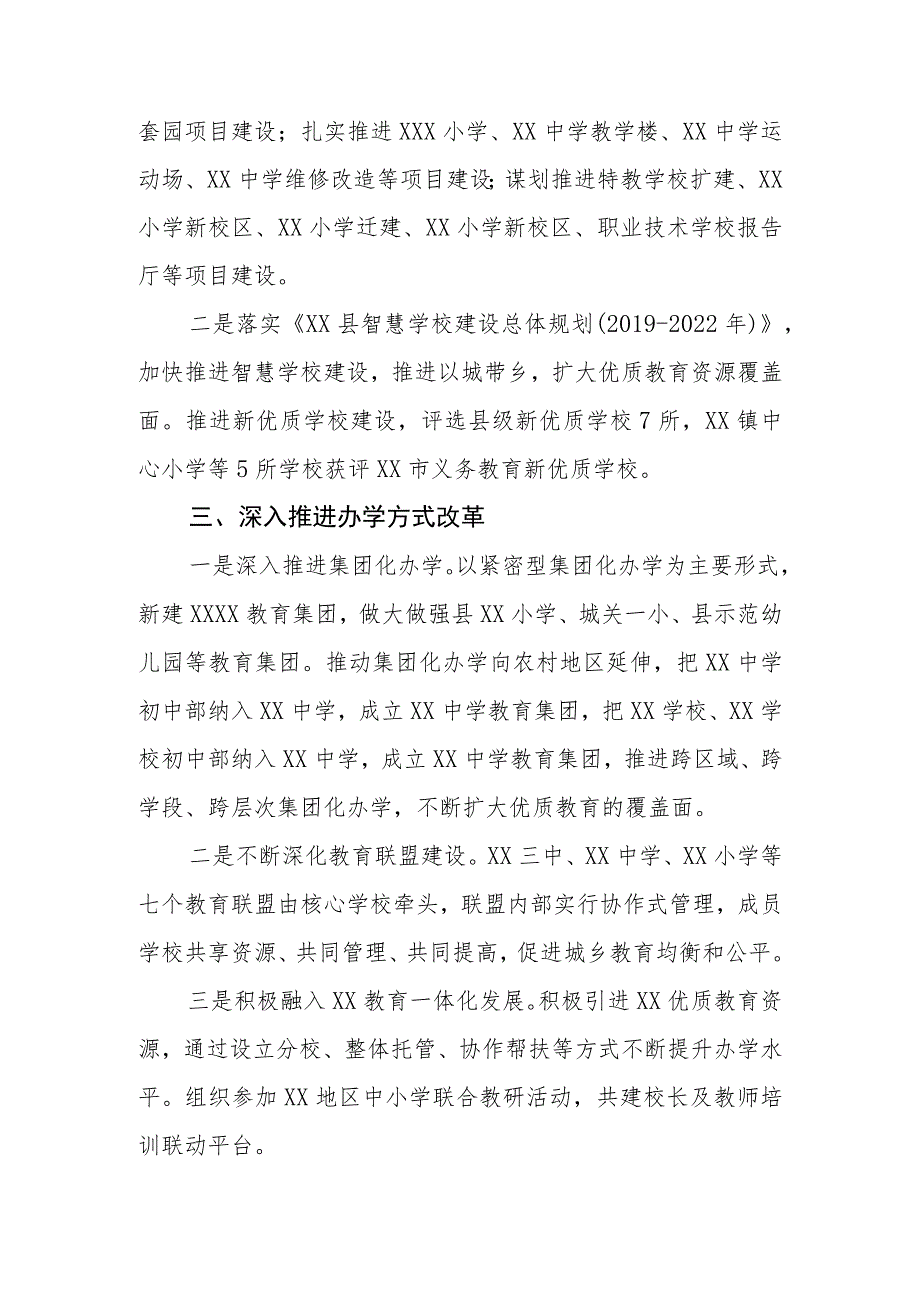 套园项目建设；扎实推进 XXX 小学、XX 中学教学楼、XX 中学运
动场、XX 中学维修改造等项目建设；谋划推进特教学校扩建、XX
小学新校区、XX 小学迁建、XX 小学新校区、职业技术学校报告
厅等项目建设。
二是落实《XX 县智慧学校建设总体规划(2019-2022 年)》，
加快推进智慧学校建设，推进以城带乡，扩大优质教育资源覆盖
面。推进新优质学校建设，评选县级新优质学校 7 所，XX 镇中
心小学等 5 所学校获评 XX 市义务教育新优质学校。
三、深入推进办学方式改革
一是深入推进集团化办学。以紧密型集团化办学为主要形式，
新建 XXXX 教育集团，做大做强县 XX 小学、城关一小、县示范幼
儿园等教育集团。推动集团化办学向农村地区延伸，把 XX 中学
初中部纳入 XX 中学，成立 XX 中学教育集团，把 XX 学校、XX 学
校初中部纳入 XX 中学，成立 XX 中学教育集团，推进跨区域、跨
学段、跨层次集团化办学，不断扩大优质教育的覆盖面。
二是不断深化教育联盟建设。XX 三中、XX 中学、XX 小学等
七个教育联盟由核心学校牵头，联盟内部实行协作式管理，成员
学校共享资源、共同管理、共同提高，促进城乡教育均衡和公平。
三是积极融入 XX 教育一体化发展。积极引进 XX 优质教育资
源，通过设立分校、整体托管、协作帮扶等方式不断提升办学水
平。组织参加 XX 地区中小学联合教研活动，共建校长及教师培
训联动平台。